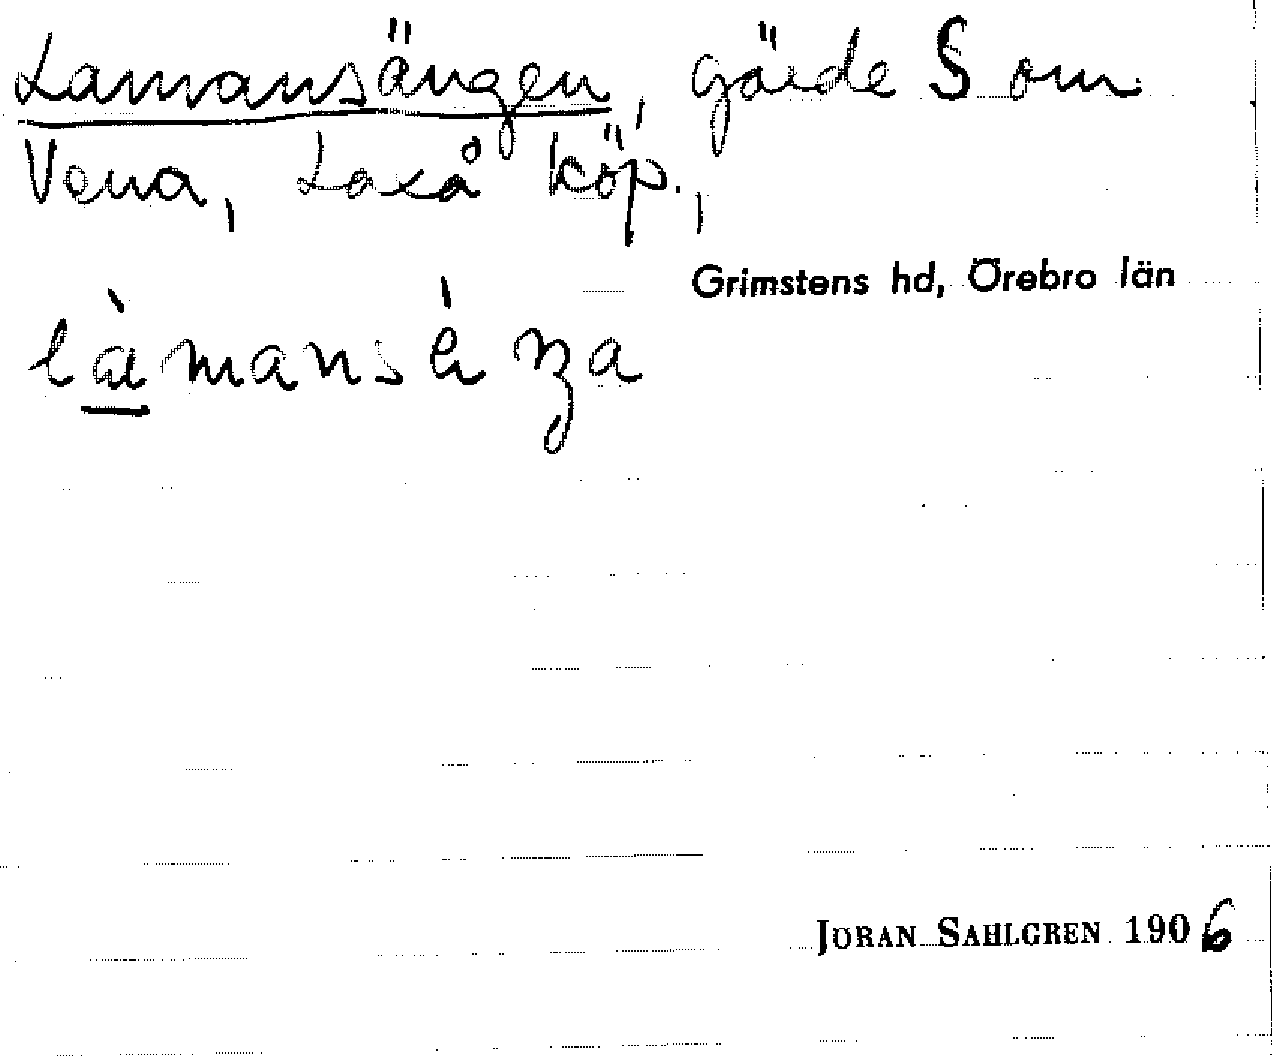 Lamansängen, gärde S om
Vena, Laxå köp.,
Grimstens hd, Örebro län
JÖRAN SAHLGREN 1906